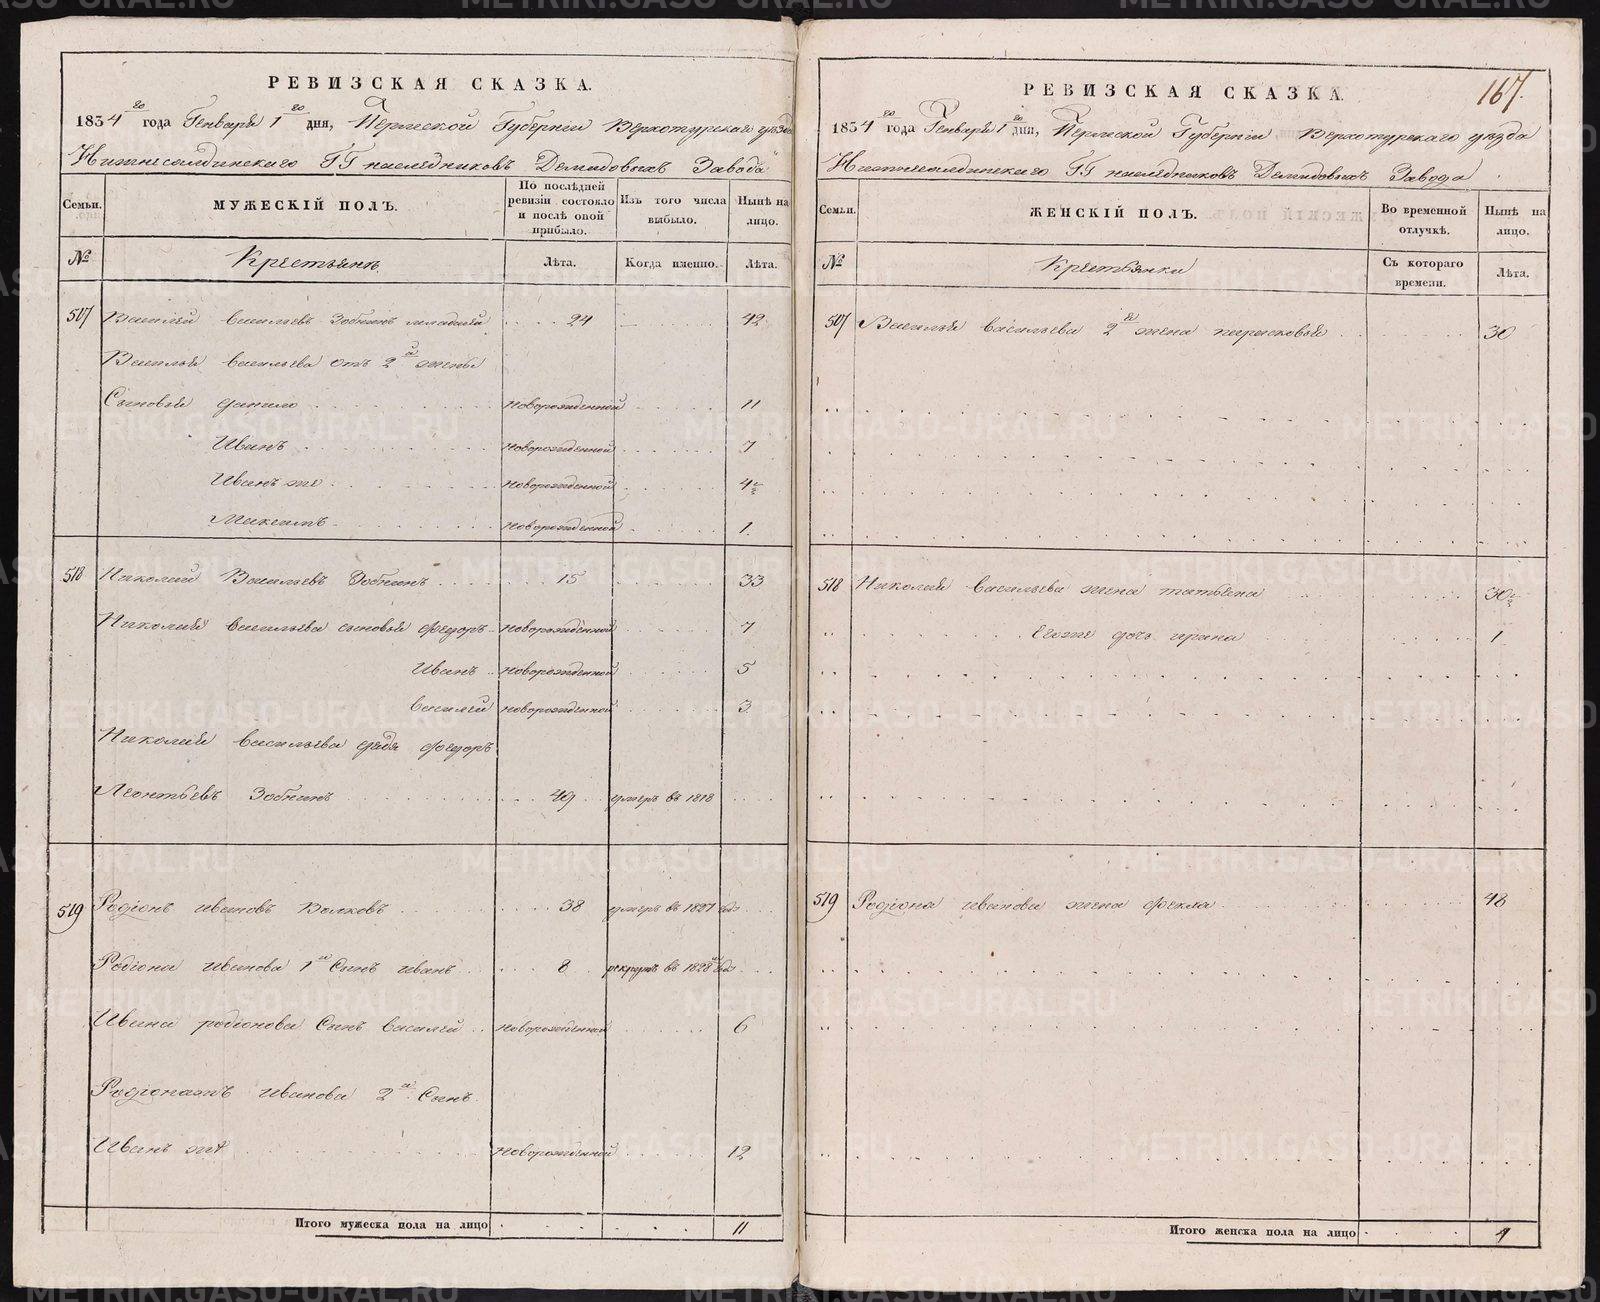 РЕВИЗСКАЯ СКАЗКА.
1834го года Генваря 1го дня, Пермской Губернiи Верхотурскаго уѣзда
Нижнесалдинскаго ГГ наслѣдниковъ Демидовыхъ Завода
Семьи.
МУЖЕСКIЙ ПОЛЪ.
По послѣдней ревизiи состояло и послѣ оной прибыло.
Изъ того числа выбыло.
Нынѣ на лицо.
№
Крестьянъ
Лѣта.
Когда именно.
Лѣта.
517 Василей Васильевъ Зобнинъ младшей 24 42
Василья Васильева отъ 2й жены
Сыновья Данило Новорожденной 11
Иванъ Новорожденной 7
Иванъ же Новорожденной 4½
Максимъ Новорожденной 1.
518 Николай Васильевъ Зобнинъ 15 33
Николая Васильева сыновья Федоръ Новорожденной 7
Иванъ Новорожденной 5
Василей Новорожденной 3
Николая Васильева дядя Федоръ
Леонтьевъ Зобнинъ 49 умеръ въ 1818
519 Родiонъ Ивановъ Волковъ 38 умеръ въ 1827 год
Родiона Иванова 1й Сынъ Иванъ 8 рекрутъ въ 1828м год
Ивана Родiонова Сынъ Василей Новорожденной 6
Родiонажъ Иванова 2й Сынъ
Иванъ же Новорожденной 12
Итого мужеска пола на лицо 11
167.
РЕВИЗСКАЯ СКАЗКА.
1834го года Генваря 1го дня, Пермской Губернiи Верхотурскаго уѣзда
Нижнесалдинскаго ГГ наслѣдниковъ Демидовыхъ Завода
Семьи.
ЖЕНСКIЙ ПОЛЪ.
Во временной отлучкѣ.
Нынѣ на лицо.
№
Крестьянки
Съ котораго времени.
Лѣта.
517 Василья Васильева 2й жена 30
518 Николая Васильева жена Татьяна 30½
Егоже дочь Ирина 1
519 Родiона Иванова жена Фекла 48
Итого женска пола на лицо 4
METRIKI.GASO-URAL.RU